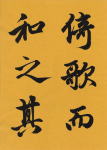 倚歌而
和之其